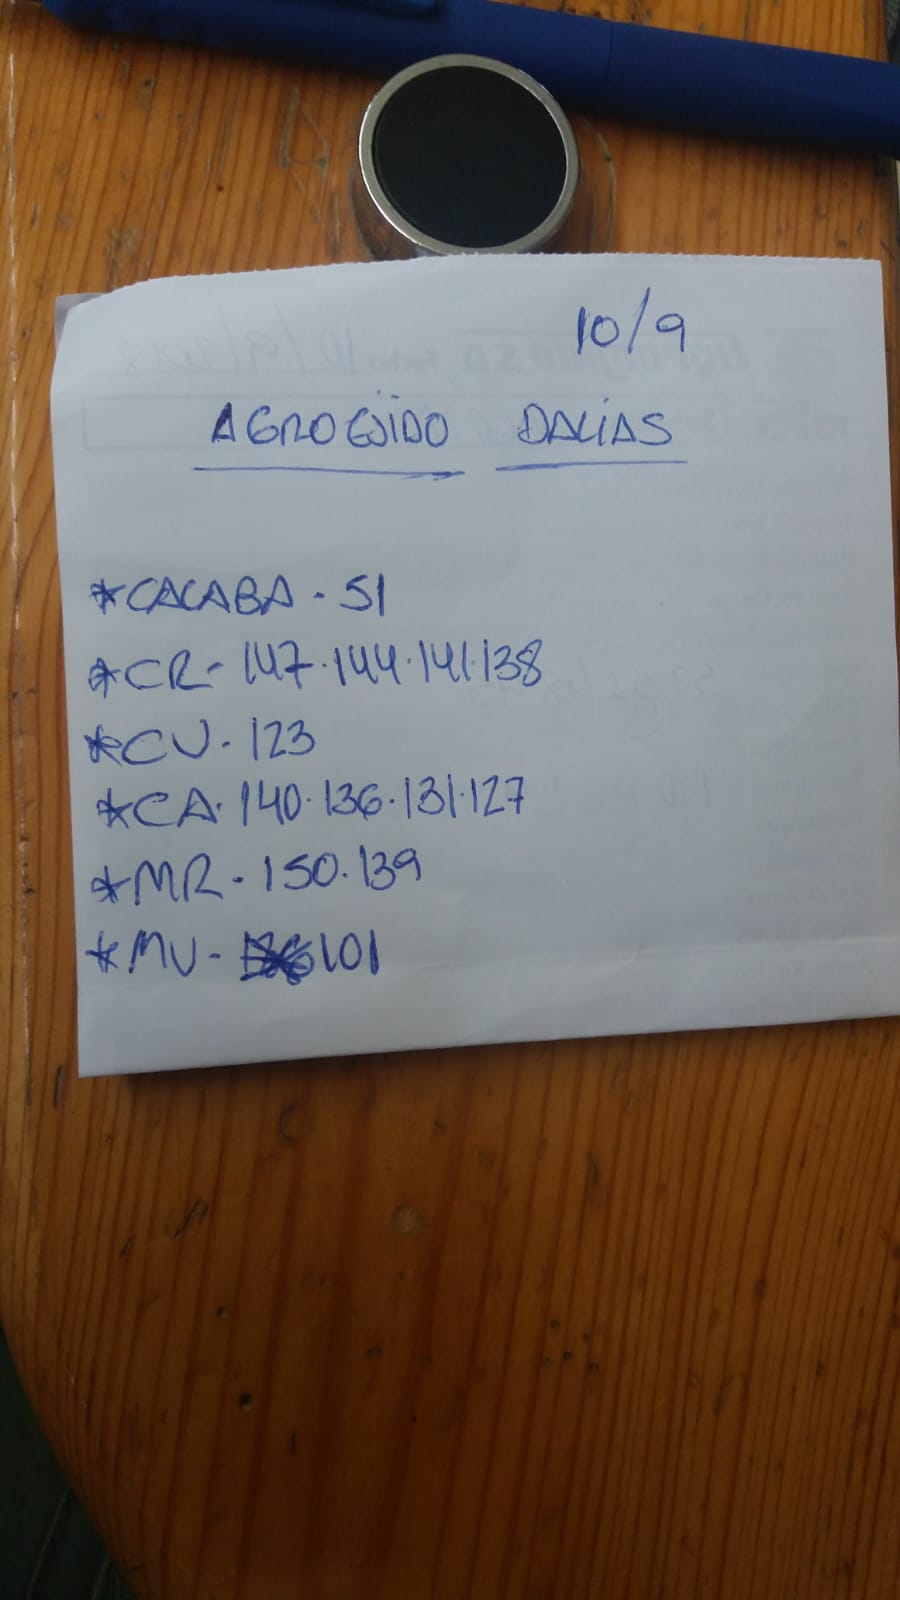 10/9
AGROEJIDO DALIAS
*CALABA - 51
*CR - 147.144.141.138
*CV - 123
*CA. 140.136.131.127
*MR - 150.139
*MV - 101